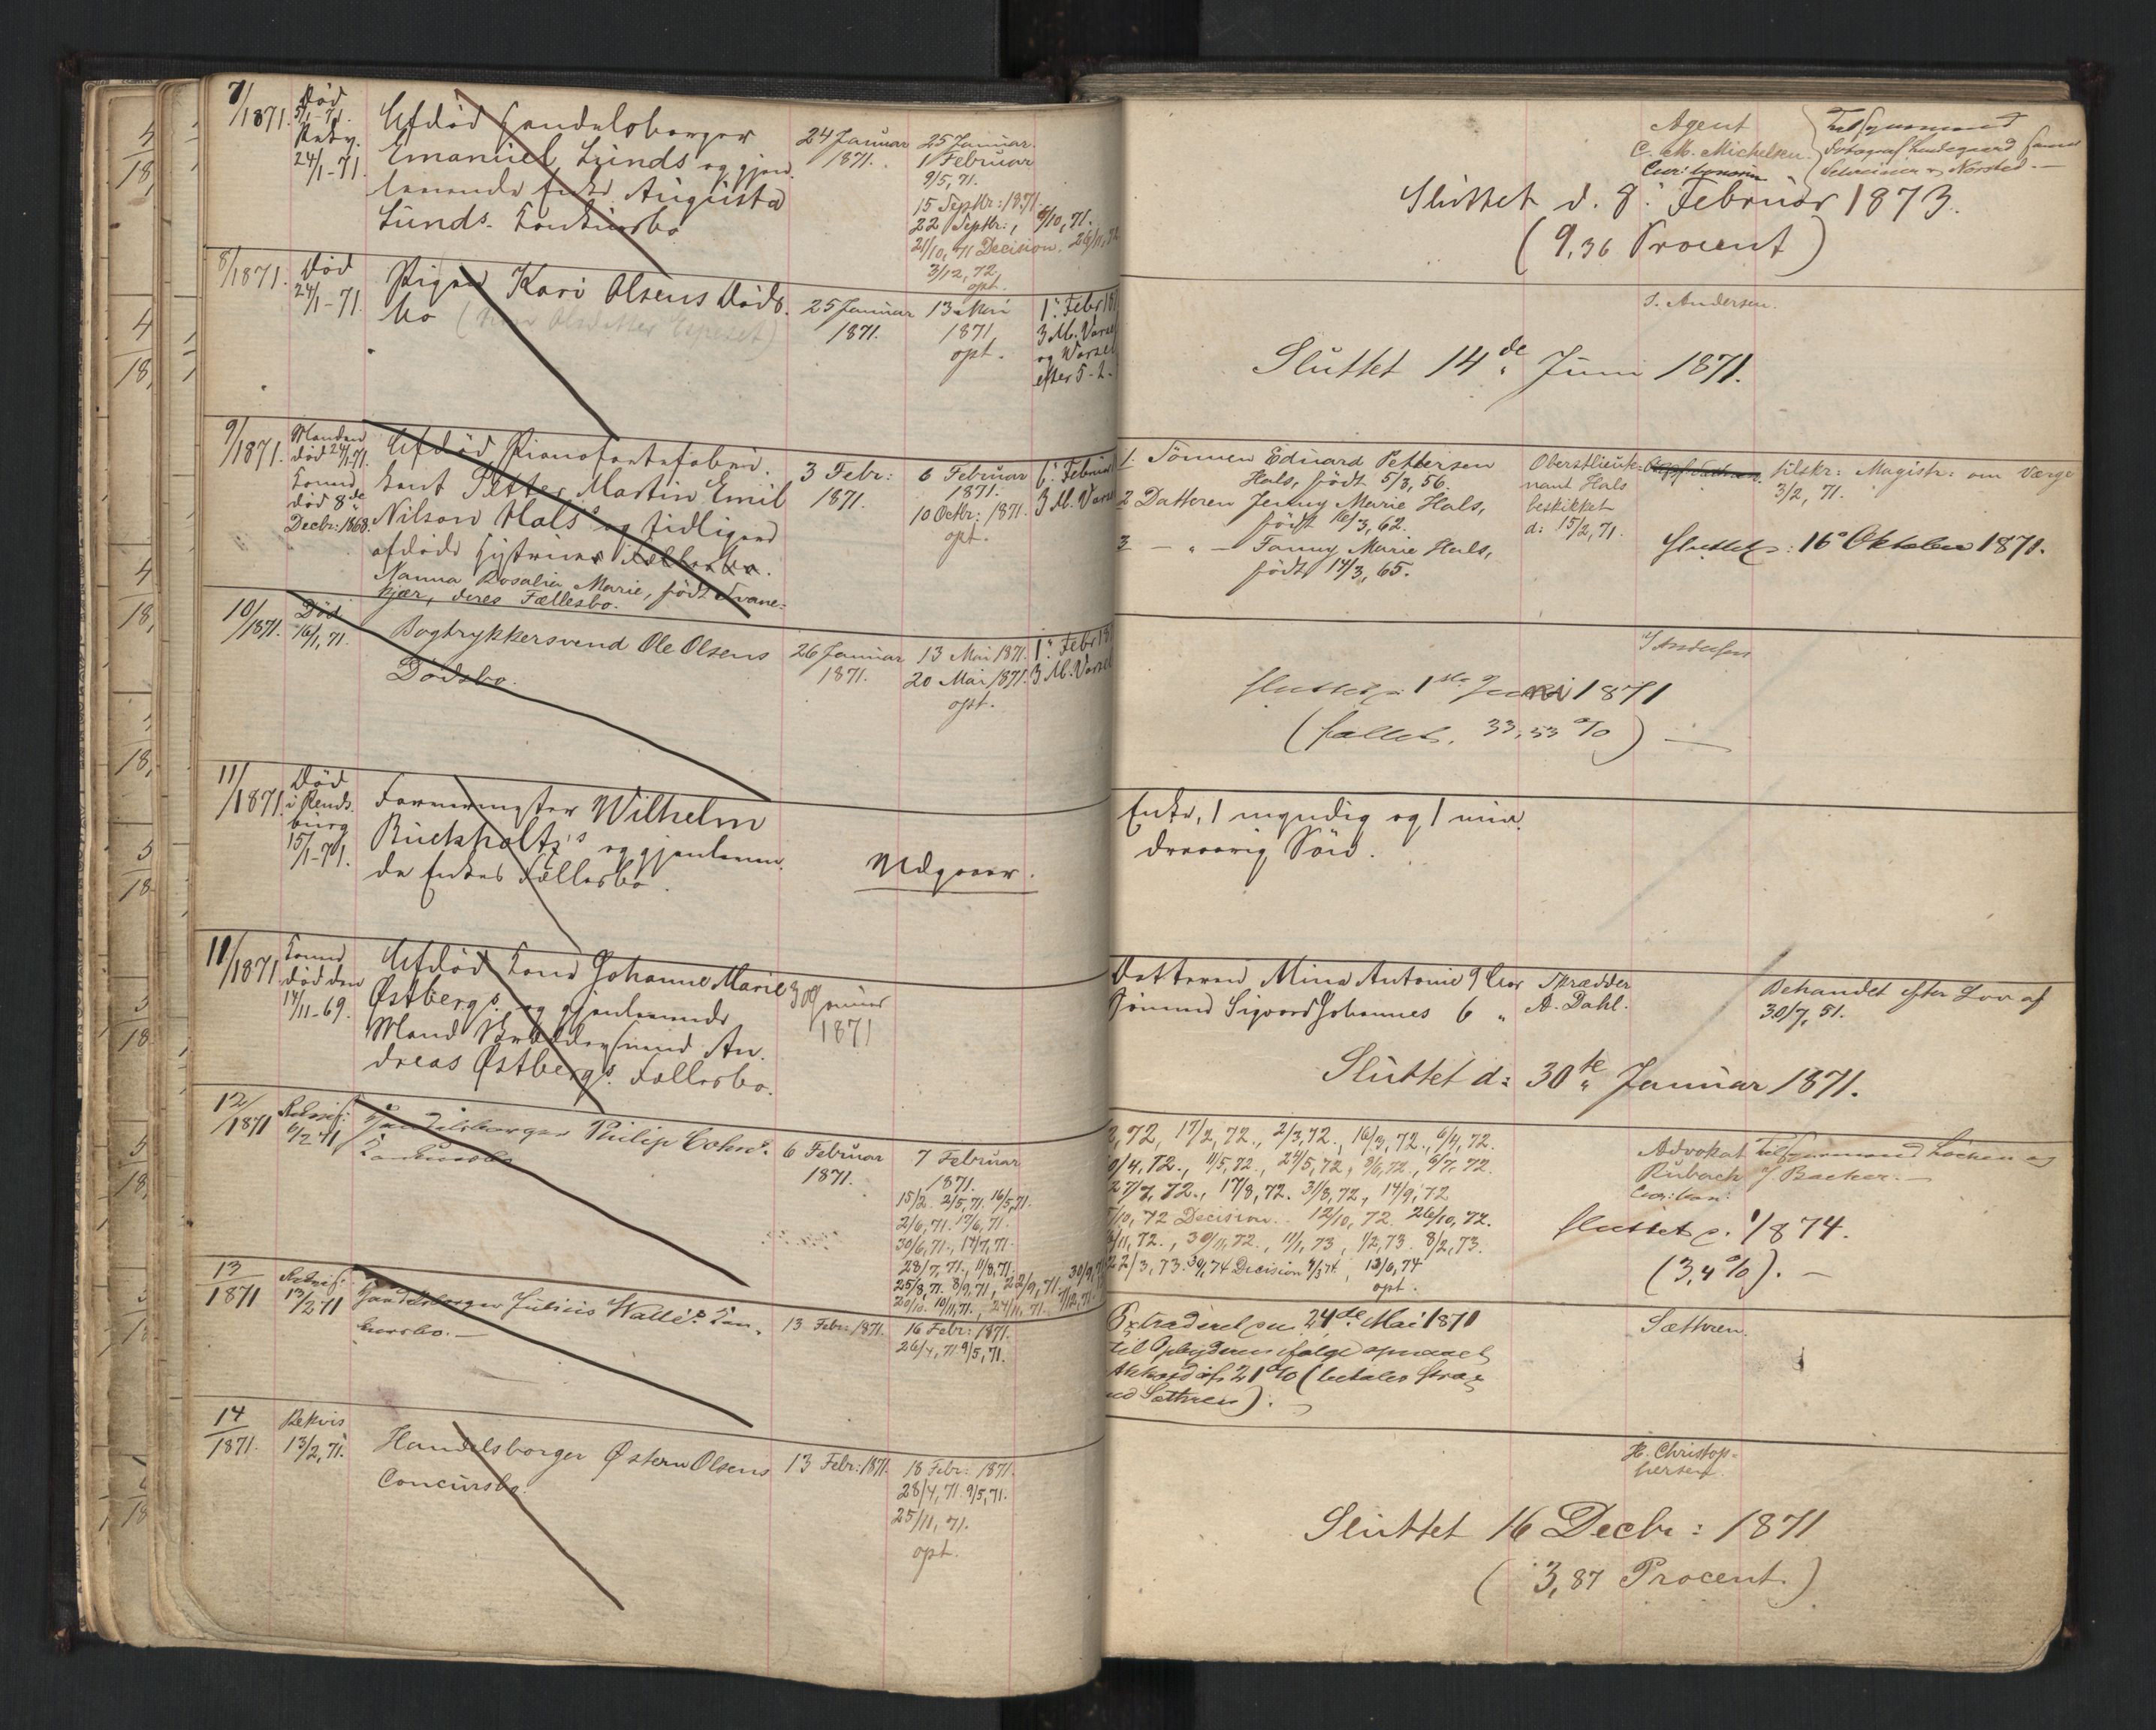 7/1871.
Død
5/1-71.
24/1-71.
Afdød Handelsborger
Emanuel Lunds og gjen-
levende Enke Augusta
Lunds Konkursbo
24 Januar
1871.
25 Januar.
1 Februar
9/5, 71.
15 Septbr: 1871.
22 Septbr:, 6/10, 71.
21/10, 71 Decision. 26/11, 72
3/12, 72.
opt.
Agent
C. M. Michelsen.
Cur: bonorum
Tilsynsmænd
Fotograf Lindegaard samt
Schreiner & Norsted. —
Sluttet d. 8. Februar 1873.
(9,36 Procent)
8/1871.
Død
24/1-71.
Pigen Kari Olsens Døds-
bo
25 Januar
1871.
13 Mai
1871
opt.
1. Febr 18
3 M. Varsel
og Varsel
efter 5-2-
S. Andersen.
Sluttet 14de Juni 1871.
9/1871.
Manden
død 24/1-71.
Konen
død 8de
Decbr: 1868.
Afdød Pianofortefabri-
kant Petter Martin Emil
Nilson Hals's og tidligere
afdøde Hustrues Fællesbo.
Nanna Rosalia Marie, født Svane-
kjær, deres Fællesbo.
3 Febr:
1871.
6 Februar
1871.
10 Octbr: 1871.
opt.
6. Februar
3 M. Varsel
1. Sønnen Edvard Pettersen
Hals, født 5/3, 56.
2 Datteren Jenny Marie Hals,
født 16/3, 62.
3 — " — Fanny Marie Hals,
født 14/3, 65.
Oberstlieute-
nant Hals
beskikket
d: 15/2, 71.
tilskr: Magistr: om Værge
3/2, 71.
Sluttet d: 16 Oktober 1871.
10/1871.
Død
16/1, 71.
Bogtrykkersvend Ole Olsens
Dødsbo.
26 Januar
1871.
13 Mai 1871.
20 Mai 1871.
opt.
1. Febr 18
3 M. Varsel
S Andersen
Sluttet d: 1ste Juni 1871
(fallit, 33,53 %) —
11/1871.
Død
i Rends-
burg
15/1-71.
Wilhelm
Buckholtz's og gjenleven-
de Enkes Fællesbo.
Udgaaer.
Enke, 1 myndig og 1 min-
dreaarig Søn.
11/1871
Konen
død den
14/11-69.
Afdød Kone Johanne Marie
Østbergs og gjenlevende
Mand Skræddersvend An-
dreas Østbergs Fællesbo.
30 Januar
1871
Datteren Mina Antonie 9 Aar
Sønnen Sigvard Johannes 6 "
Skrædder
A. Dahl.
Behandlet efter Lov af
30/7, 51.
Sluttet d: 30te Januar 1871.
12/1871
6/2 71
Handelsborger Philip Cohns
Konkursbo
6 Februar
1871.
7 Februar
1871.
15/2. 2/5, 71. 16/5, 71.
2/6, 71. 17/6, 71.
30/6, 71., 14/7, 71.
28/7, 71., 11/8, 71.
25/8, 71. 8/9, 71, 22/9, 71.
20/10. 10/11, 71., 24/11, 71.
2, 72, 17/2, 72., 2/3, 72., 16/3, 72., 6/4, 72.
0/4, 72., 11/5, 72., 24/5, 72, 9/6, 72., 6/7, 72.
27/7, 72., 17/8, 72. 31/8, 72, 14/9, 72
/10, 72 Decision. 12/10, 72. 26/10, 72.
/11, 72., 30/11, 72., 11/1, 73, 1/2, 73. 8/2, 73.
22/3, 73. Decision
opt.
Advokat
Rubach
Cur: bon:
Tilsynsmænd Løcken og
Backer. —
Sluttet d. 1/8 74.
(3,4 %). —
13/1871
13/2 71
Handelsborger Julius Walle's Kon-
kursbo. —
13 Febr: 1871.
16 Febr: 1871.
26/4, 71 9/5, 71.
Extraderet den 24de Mai 1871
til Opbyderen ifølge opnaaet
Akkord af 21 % (betales strax
ved Sættren).
Sættren.
14/1871.
Rekvis
13/2, 71.
Handelsborger Østern Olsens
Concursbo.
13 Febr: 1871.
18 Febr: 1871.
28/4, 71. 9/5, 71.
25/11, 71.
opt.
H. Christop-
hersen.
Sluttet 16 Decbr: 1871
(3,87 Procent.)